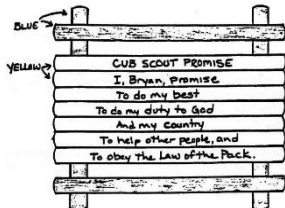 BLUE
YELLOW
CUB SCOUT PROMISE
I, Bryan, promise
To do my best
To do my duty to God
And my country
To help other people, and
To obey the Law of the Pack.